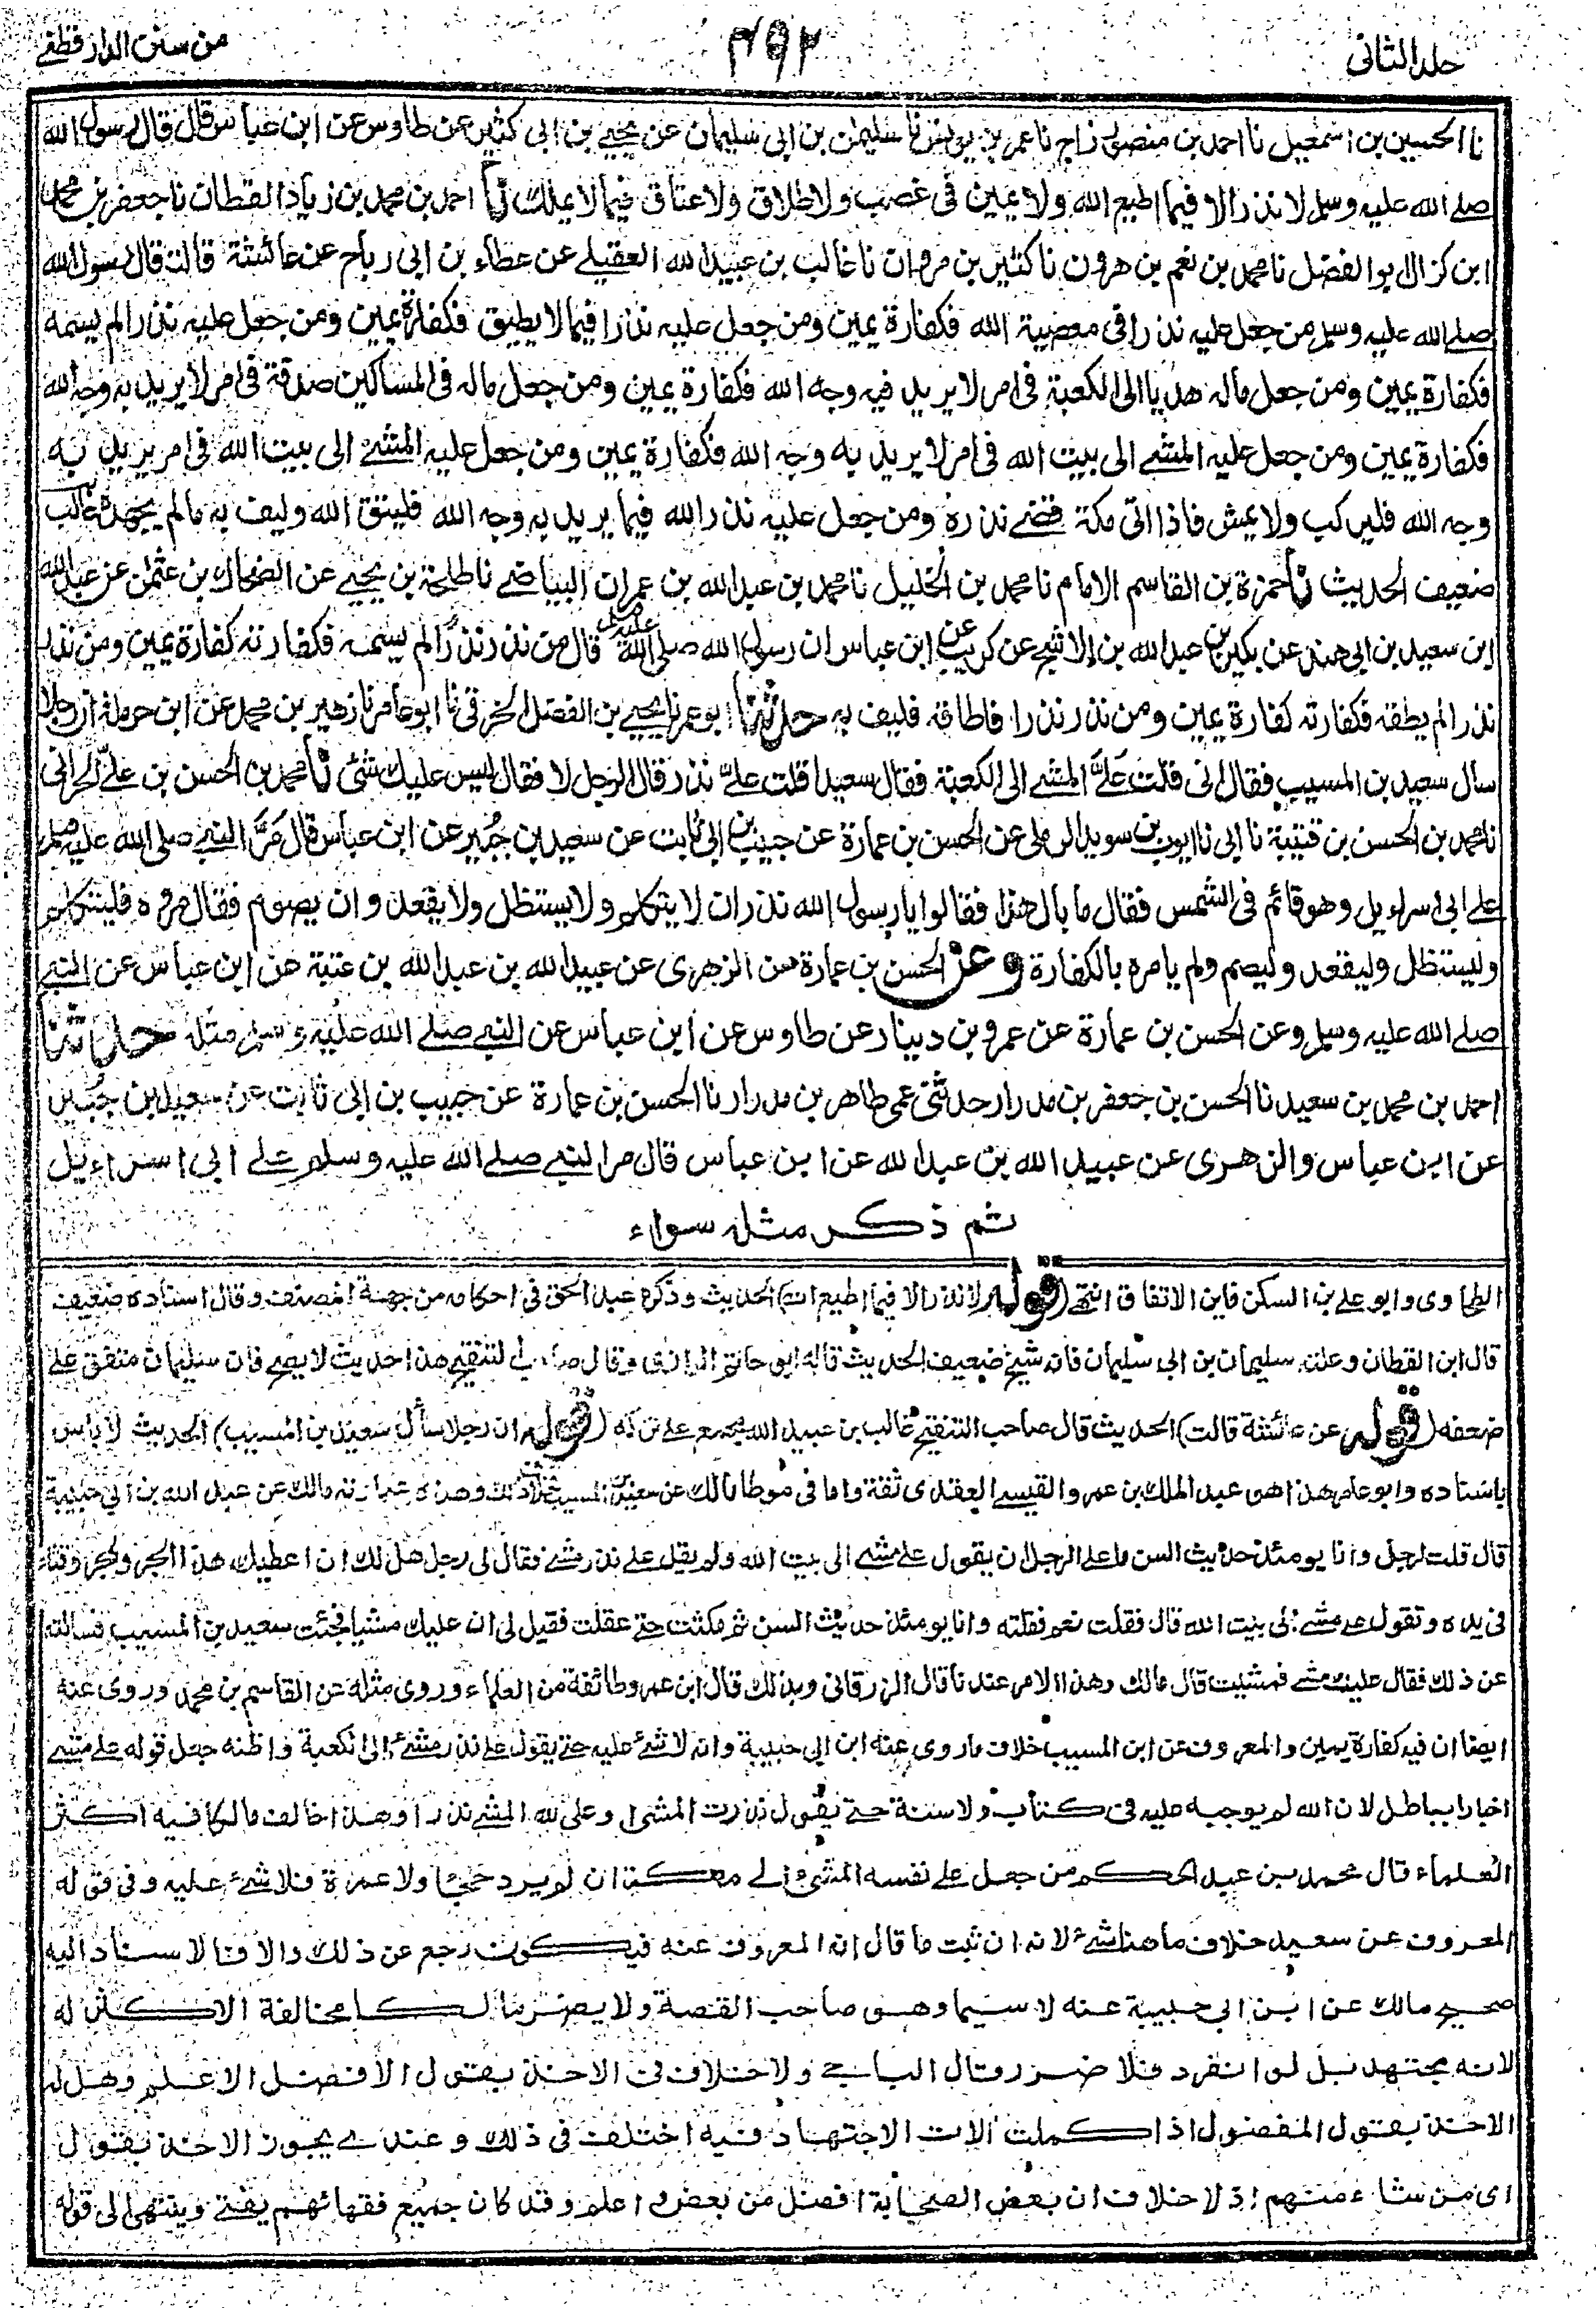 جلد الثانى
٤٩٢
من سنن الدارقطنى
نا الحسين بن اسمعيل نا احمد بن منصور زاج نا عمر بن يونس نا سليمن بن ابى سليمان عن يحيى بن ابى كثير عن طاوس عن ابن عباس قال قال رسول الله
صلى الله عليه وسلم لا نذر الا فيما اطيع الله ولا يمين فى غضب ولا طلاق ولا عتاق فيما لا يملك نا احمد بن محمد بن زياد القطان نا جعفر بن محمد
ابن كزال ابو الفضل نا محمد بن نعيم بن هرون نا كثير بن مروان نا غالب بن عبيد الله العقيلى عن عطاء بن ابى رباح عن عائشة قالت قال رسول الله
صلى الله عليه وسلم من جعل عليه نذرا فى معصية الله فكفارة يمين ومن جعل عليه نذرا فيما لا يطيق فكفارة يمين ومن جعل عليه نذرا لم يسمه
فكفارة يمين ومن جعل ماله هديا الى الكعبة فى امر لا يريد فيه وجه الله فكفارة يمين ومن جعل ماله فى المساكين صدقة فى امر لا يريد به وجه الله
فكفارة يمين ومن جعل عليه المشى الى بيت الله فى امر لا يريد به وجه الله فكفارة يمين ومن جعل عليه المشى الى بيت الله فى امر يريد به
وجه الله فليركب ولا يمش فاذا اتى مكة قضى نذره ومن جعل عليه نذر الله فيما يريد به وجه الله فليتق الله وليف به ما لم يجهده غالب
ضعيف الحديث نا حمزة بن القاسم الامام نا محمد بن الخليل نا محمد بن عبد الله بن عمران البياضى نا طلحة بن يحيى عن الضحاك بن عثمن عن عبد الله
ابن سعيد بن ابى هند عن بكير بن عبد الله بن الاشج عن كريب عن ابن عباس ان رسول الله صلى الله عليه وسلم قال من نذر نذرا لم يسمه فكفارته كفارة يمين ومن نذر
نذرا لم يطقه فكفارته كفارة يمين ومن نذر نذرا فاطاقه فليف به حدثنا ابو عمر نا يحيى بن الفضل الخرقى نا ابو عامر نا زهير بن محمد عن ابن حرملة ان رجلا
سأل سعيد بن المسيب فقال انى قلت على المشى الى الكعبة فقال سعيد اقلت على نذر قال الرجل لا فقال ليس عليك شئى نا محمد بن الحسن بن على الحرانى
نا محمد بن الحسن بن قتيبة نا ابى نا ايوب بن سويد الرملى عن الحسن بن عمارة عن حبيب بن ابى ثابت عن سعيد بن جبير عن ابن عباس قال مر النبى صلى الله عليه وسلم
على ابى اسراءيل وهو قائم فى الشمس فقال ما بال هذا فقالوا يا رسول الله نذر ان لا يتكلم ولا يستظل ولا يقعد وان يصوم فقال مروه فليتكلم
وليستظل وليقعد وليصم ولم يامره بالكفارة وعن الحسن بن عمارة عن الزهرى عن عبيد الله بن عبد الله بن عتبة عن ابن عباس عن النبى
صلى الله عليه وسلم وعن الحسن بن عمارة عن عمرو بن دينار عن طاوس عن ابن عباس عن النبى صلى الله عليه وسلم مثله حدثنا
احمد بن محمد بن سعيد نا الحسن بن جعفر بن مدرار حدثنى عمى طاهر بن مدرار نا الحسن بن عمارة عن حبيب بن ابى ثابت عن سعيد بن جبير
عن ابن عباس والزهرى عن عبيد الله بن عبد الله عن ابن عباس قال مر النبى صلى الله عليه وسلم على ابى اسراءيل
ثم ذكر مثله سواء
الطحاوى وابو على بن السكن فاين الاتفاق انتهى (قوله لا نذر الا فيما اطيع الله) الحديث وذكره عبد الحق فى احكامه من جهة المصنف وقال اسناده ضعيف
قال ابن القطان وعلته سليمان بن ابى سليمان فانه شيخ ضعيف الحديث قاله ابو حاتم الرازى وقال صاحب التنقيح هذا حديث لا يصح فان سليمان متفق على
ضعفه (قوله عن عائشة قالت) الحديث قال صاحب التنقيح غالب بن عبيد الله مجمع على تركه (قوله ان رجلا سأل سعيد بن المسيب) الحديث لا باس
باسناده وابو عامر هذا هو عبد الملك بن عمرو القيسى العقدى ثقة واما فى موطا مالك عن سعيد بن المسيب خلاف ذلك وهذه عبارته مالك عن عبد الله بن ابى حبيبة
قال قلت لرجل وانا يومئذ حديث السن ما على الرجل ان يقول على مشى الى بيت الله ولم يقل على نذر مشى فقال لى رجل هل لك ان اعطيك هذا الجرو لجرو قثاء
فى يده وتقول على مشى الى بيت الله قال فقلت نعم فقلته وانا يومئذ حديث السن ثم مكثت حتى عقلت فقيل لى ان عليك مشيا فجئت سعيد بن المسيب فسالته
عن ذلك فقال عليك مشى فمشيت قال مالك وهذا الامر عندنا قال الزرقانى وبذلك قال ابن عمر وطائفة من العلماء وروى مثله عن القاسم بن محمد وروى عنه
ايضا ان فيه كفارة يمين والمعروف عن ابن المسيب خلاف ما روى عنه ابن ابى حبيبة وانه لا شئ عليه حتى يقول على نذر مشى الى الكعبة واظنه جعل قوله على مشى
اخبارا بباطل لان الله لم يوجبه عليه فى كتاب ولا سنة حتى يقول نذرت المشى او على لله المشى نذرا وهذا خالف مالكا فيه اكثر
العلماء قال محمد بن عبد الحكم من جعل على نفسه المشى الى مكة ان لم يرد حجا ولا عمرة فلا شئ عليه وفى قوله
المعروف عن سعيد خلاف ما هنا شئ لانه ان ثبت ما قال انه المعروف عنه فيكون رجع عن ذلك والا فالاسناد اليه
صحيح مالك عن ابن ابى حبيبة عنه لا سيما وهو صاحب القصة ولا يضر مالكا مخالفة الاكثر له
لانه مجتهد بل لو انفرد فلا ضرر وقال الباجى ولا خلاف فى الاخذ بقول الافضل الاعلم وهل له
الاخذ بقول المفضول اذا كملت الات الاجتهاد فيه اختلف فى ذلك وعندى يجوز الاخذ بقول
اى من شاء منهم اذ لا خلاف ان بعض الصحابة افضل من بعض واعلم وقد كان جميع فقهائهم يفتى وينتهى الى قوله